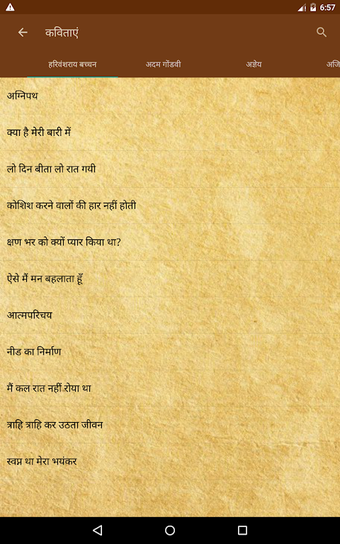 6:57
कविताएं
हरिवंशराय बच्चन अदम गोंडवी अज्ञेय
अग्निपथ
क्या है मेरी बारी में
लो दिन बीता लो रात गयी
कोशिश करने वालों की हार नहीं होती
क्षण भर को क्यों प्यार किया था?
ऐसे मैं मन बहलाता हूँ
आत्मपरिचय
नीड का निर्माण
मैं कल रात नहीं रोया था
त्राहि त्राहि कर उठता जीवन
स्वप्न था मेरा भयंकर